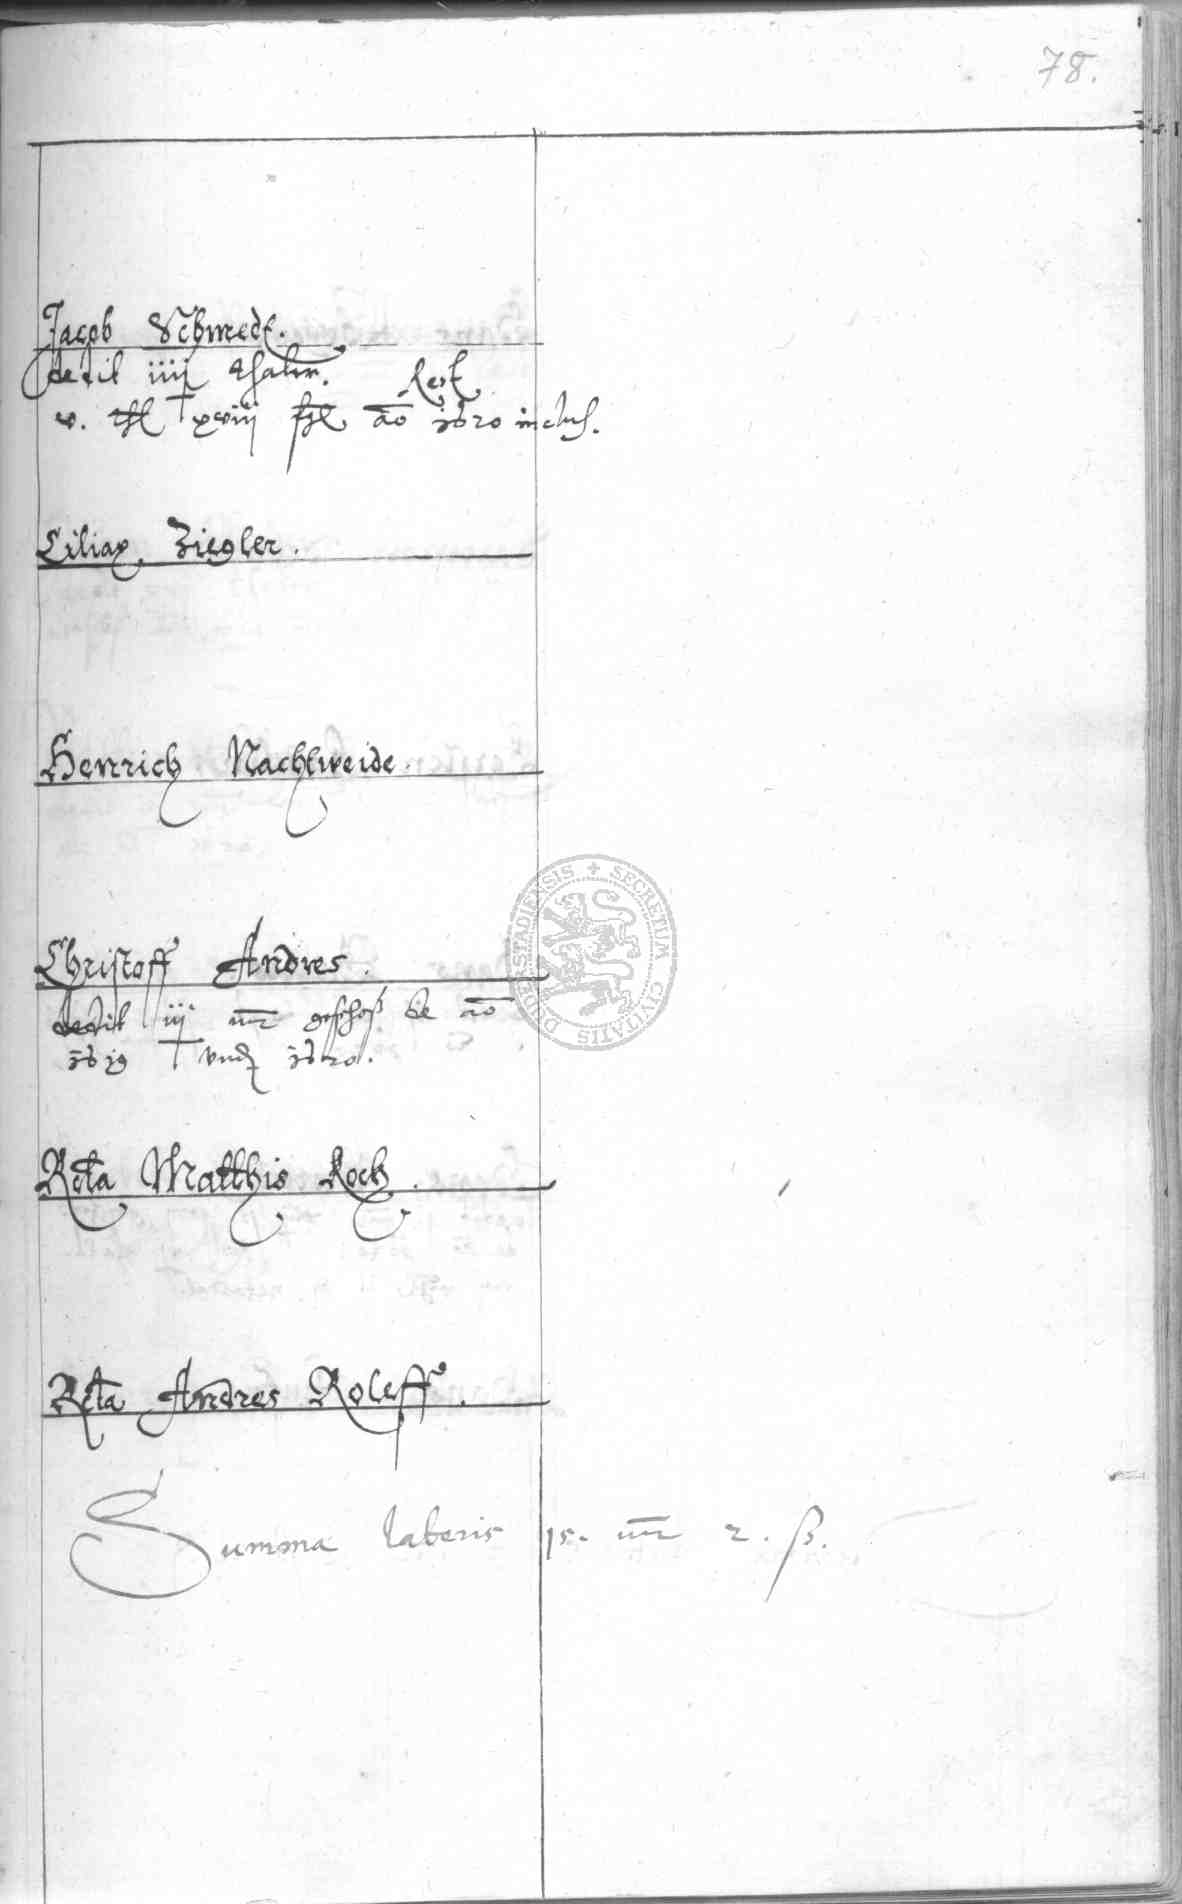 78.
Jacob Schmedt.
dedit iiij thaler. Rest
v. thl xviij ßl ao 1620 inclus.
Ciliax Ziegler.
Henrich Nachtweide.
Christoff Andres.
dedit iij mr geschoß de ao
1619 vnd 1620.
Rcta Matthis Koch.
Rcta Andres Roleff.
Summa lateris 15. mr 2. ß.
SECRETUM CIVITATIS DUDERSTADIENSIS